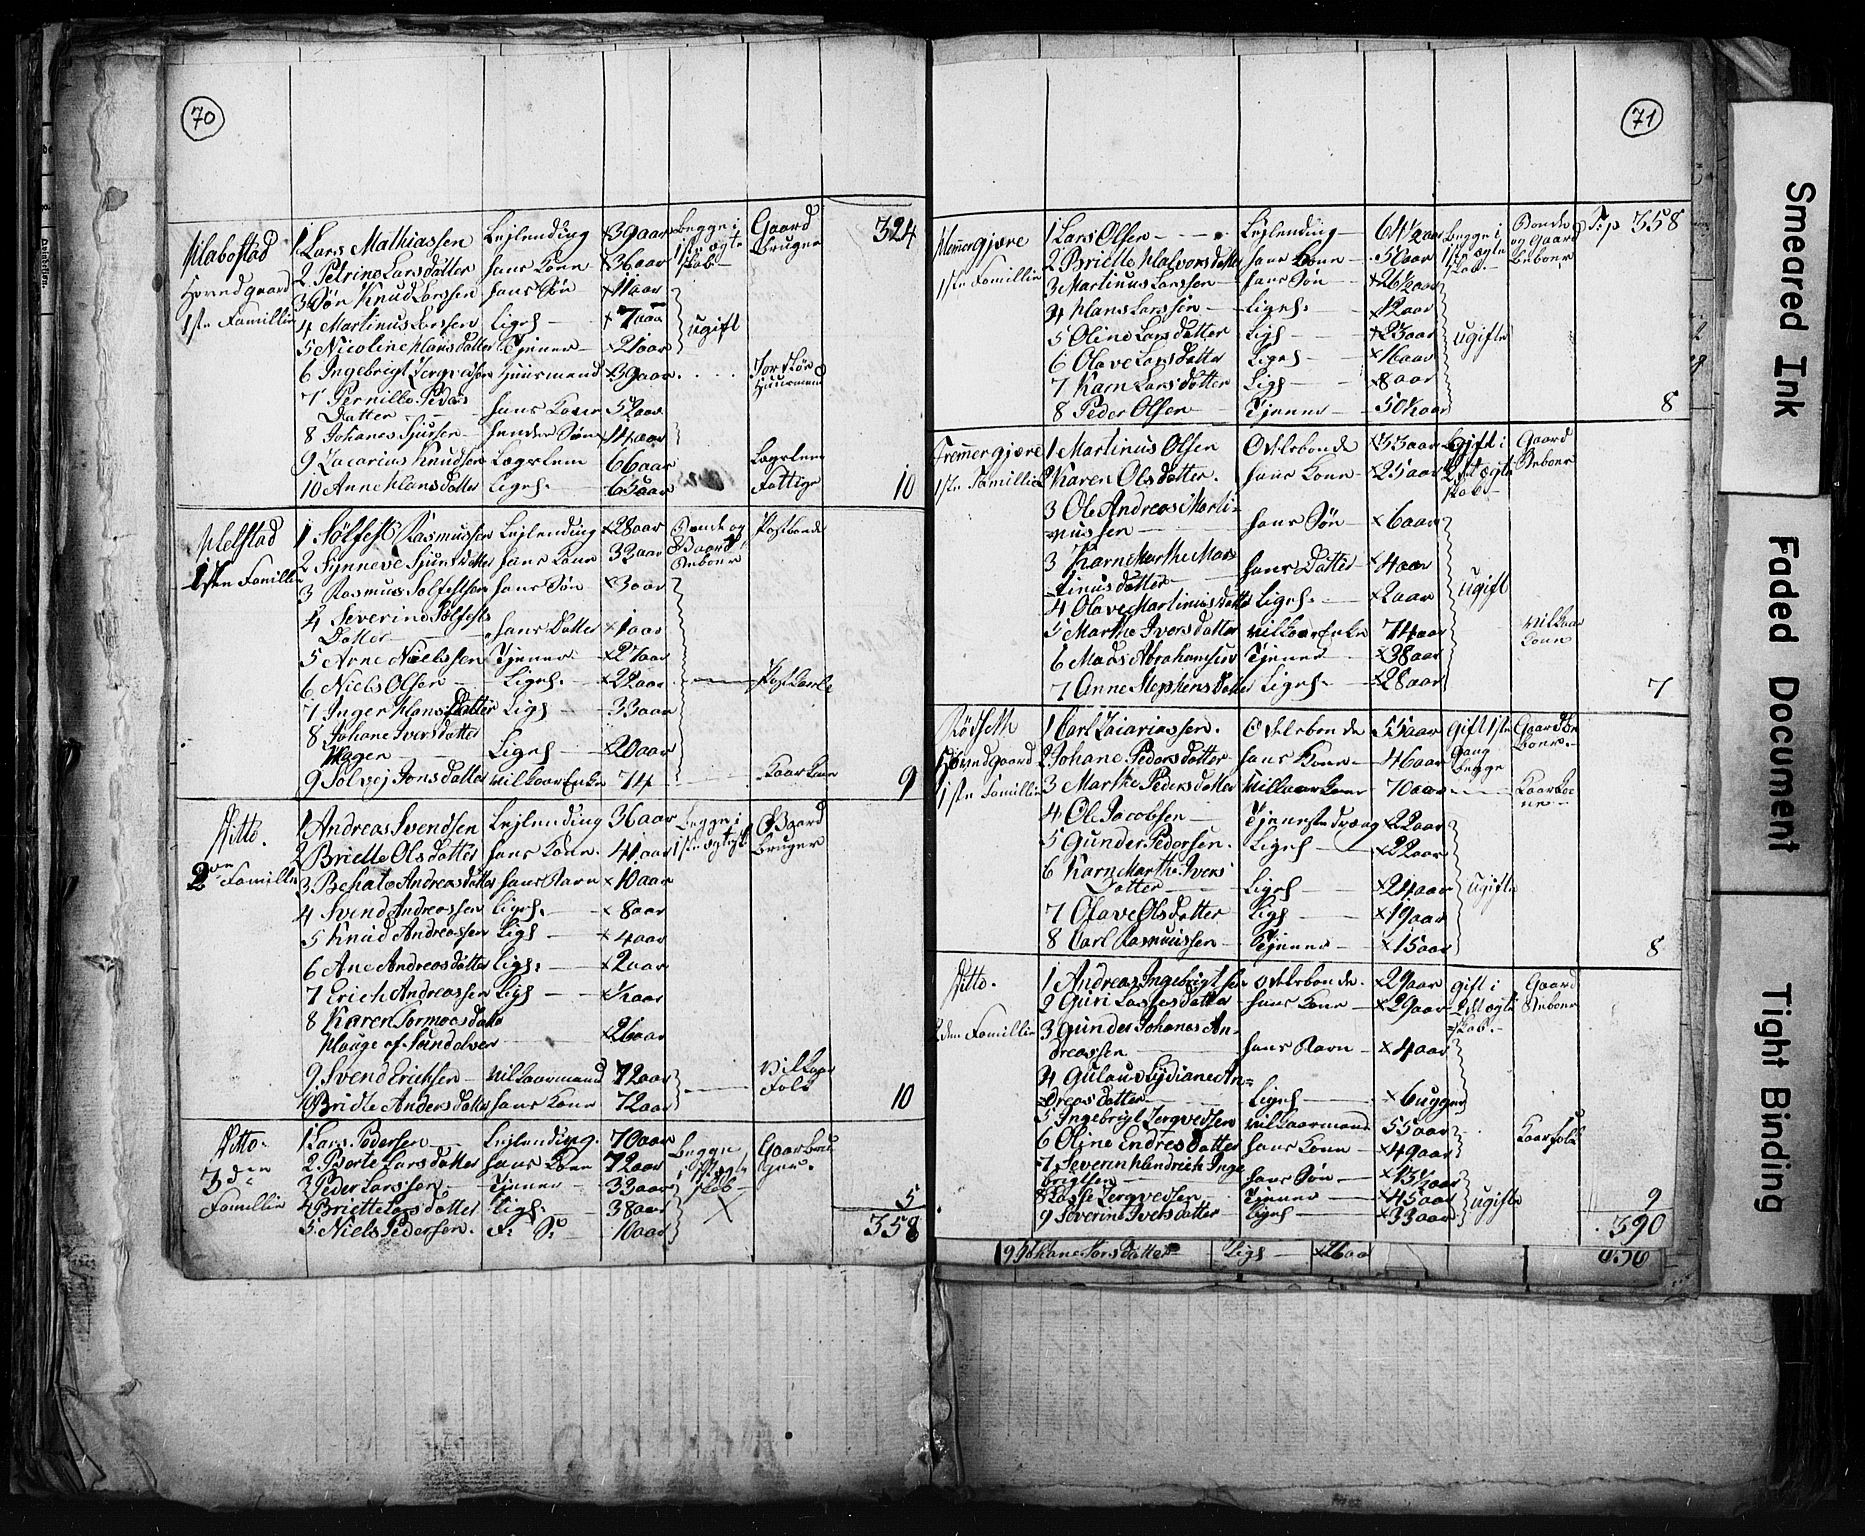 70
324
Habostad
Hovedgaard
1ste Famillie
1 Lars Mathiassen Lejlending x39 aar Begge i 1ste ægteskab Gaard Bruger
2 Petrine Larsdatter hans Kone x36 aar
3 Søn Knud Larssen hans Søn x11 aar
4 Martinus Larssen Ligeh x7 aar ugift
5 Nicoline Hansdatter Tjener x21 aar
6 Ingebrigt Huusmand x39 aar Jordløs Huusmand
7 Pernille Peders
Datter hans Kone 52 aar
8 Johanes Sjursen hendes Søn x14 aar
9 Zacarias Knudsen Lægslem 66 aar Lægslem
10 Anne Hansdatter Ligeh 65 aar Fattige 10
Helstad
1ste Famillie
1 Sølfest Rasmussen Lejlending x28 aar Bonde og Gaard Beboer Postbonde
2 Synneve Sjursdatter hans Kone 33 aar
3 Rasmus Solfestsen hans Søn x3 aar
4 Severine Sølfests
Datter hans Datter x1 aar
5 Arne Nielssen Tjener x27 aar
6 Niels Olsen Ligeh x22 aar Postkarle
7 Inger Hansdatter Ligh 33 aar
8 Johane Iversdatter
Hagen Ligeh x20 aar
9 Solvej Jonsdatter Vilkaar Enke 74 Kaarkone 9
Ditto.
2den Famillie
1 Andreas Svendsen Lejlending 36 aar Begge i 1ste ægtesk Gaard Bruger
2 Briette Olsdatter hans Kone 41 aar
3 Behate Andreasdatter hans Barn x10 aar
4 Svend Andreassen Ligeh x8 aar
5 Knud Andreassen Ligh x4 aar
6 Ane Andreasdatter Ligh x2 aar
7 Erich Andreassen Ligh x½ aar
8 Karen Tormoesdatter
x26 aar
9 Svend Erichsen Vilkaarmand 72 aar Vilkaar Folk
10 Bridte Andersdatter hans Kone 72 aar 10
Ditto.
3den
Famillie
1 Lars Pedersen Lejlending 70 aar Begge i 1ste ægteskab Gaard Bruger.
2 Berte Larsdatter hans Kone 72 aar
3 Peder Larssen Tjener 33 aar
4 Briette Larsdatter Ligh 38 aar 5
5 Niels Pedersen 10 aar 358
71
Trp 358
Hemmergjære
1ste Famillie
1 Lars Olsen Lejlending 64½ aar Begge i 1ste ægteskab Bonde og Gaard Beboer
2 Briette Halvorsdatter hans Kone 51 aar
3 Martinus Larssen hans Søn x26½ aar
4 Hans Larssen Ligeh x12 aar
5 Oline Larsdatter Ligh x23 aar ugifte
6 Olave Larsdatter Ligeh x16 aar
7 Karn Larsdatter Ligh x8 aar
8 Peder Olsen Tjener 50½ aar 8
Fremmergjære
1ste Famillie
1 Martinus Olsen Odelsbonde x33 aar gift i 2det ægteskab Gaard Beboer
2 Karen Olsdatter hans Kone x25 aar
3 Ole Andreas Marti-
nussen hans Søn x6 aar
3 Karn Marthe Mar-
tinusdatter hans Datter x4 aar ugift
4 Olave Martinusdatter Ligeh x2 aar
5 Marthe Iversdatter Vilkaar Enke 74 aar Vilkaar Kone
6 Mads Abrahamsen Tjener x38 aar
7 Anne Stephensdatter Ligeh x28 aar 7
Rødseth
Hovedgaard
1ste Famillie
1 Carl Zacariassen Odelsbonde 55 aar Gift 1ste Gang begge Gaard Beboere
2 Johane Pedersdatter hans Kone 46 aar
3 Marthe Pedersdatter Vilkaar Kone 70 aar Kaar Kone
4 Ole Jacobsen Tjenestedræng x22 aar
5 Gunder Pedersen Ligeh x22 aar
6 Karn Marthe Ivers
Datter Ligeh x24 aar ugifte
7 Olave Olsdatter Ligh x19 aar
8 Carl Rasmussen Tjener x15 aar 8
Ditto.
2den Famillie
1 Andreas Ingebrigtsen Odelsbonde x29 aar gift i 2det ægteskab Gaard Beboer
2 Guri Lassesdatter hans Kone x29 aar
3 Gunder Johanes An-
dreassen hans Barn x4 aar
4 Gulaus Lydiane An-
dreasdatter Ligeh x6 uger
5 Ingebrigt Vilkaarmand 55 aar Kaarfolk
6 Oline Endresdatter hans Kone x49 aar
7 Severin Hendrich Inge
brigtsen hans Søn x13½ aar
8 Lasse Tjener x45 aar ugifte 9
9 Severine Iversdatter Ligeh x33 aar 390
9 Johane Larsdatter Ligh x26 aar
Smeared Ink
Faded Document
Tight Binding